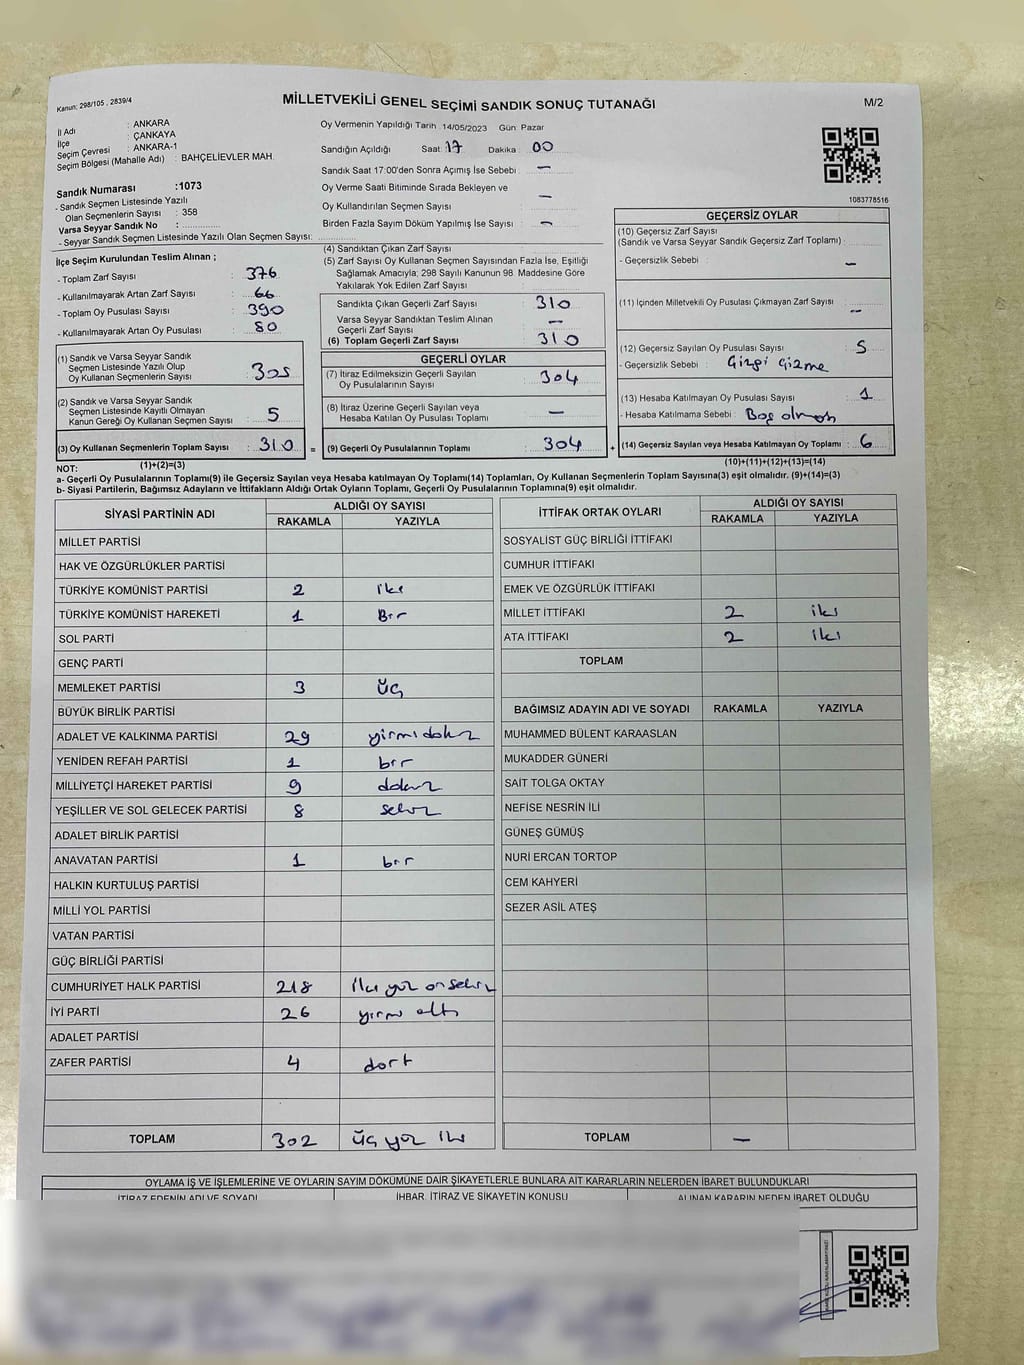 Kanun: 298/105 , 2839/4
MİLLETVEKİLİ GENEL SEÇİMİ SANDIK SONUÇ TUTANAĞI
M/2
İl Adı : ANKARA
İlçe : ÇANKAYA
Seçim Çevresi : ANKARA-1
Seçim Bölgesi (Mahalle Adı) : BAHÇELİEVLER MAH.
Sandık Numarası :1073
- Sandık Seçmen Listesinde Yazılı
Olan Seçmenlerin Sayısı : 358
Varsa Seyyar Sandık No :
- Seyyar Sandık Seçmen Listesinde Yazılı Olan Seçmen Sayısı:
Oy Vermenin Yapıldığı Tarih 14/05/2023 Gün: Pazar
Sandığın Açıldığı Saat: 17 Dakika : 00
Sandık Saat 17:00'den Sonra Açımış İse Sebebi : —
Oy Verme Saati Bitiminde Sırada Bekleyen ve
Oy Kullandırılan Seçmen Sayısı —
Birden Fazla Sayım Döküm Yapılmış İse Sayısı : —
1083778516
İlçe Seçim Kurulundan Teslim Alınan ;
- Toplam Zarf Sayısı : 376
- Kullanılmayarak Artan Zarf Sayısı : 66
- Toplam Oy Pusulası Sayısı : 390
- Kullanılmayarak Artan Oy Pusulası : 80
(1) Sandık ve Varsa Seyyar Sandık
Seçmen Listesinde Yazılı Olup
Oy Kullanan Seçmenlerin Sayısı : 305
(2) Sandık ve Varsa Seyyar Sandık
Seçmen Listesinde Kayıtlı Olmayan
Kanun Gereği Oy Kullanan Seçmen Sayısı : 5
(3) Oy Kullanan Seçmenlerin Toplam Sayısı : 310 =
(4) Sandıktan Çıkan Zarf Sayısı
(5) Zarf Sayısı Oy Kullanan Seçmen Sayısından Fazla İse, Eşitliği
Sağlamak Amacıyla; 298 Sayılı Kanunun 98. Maddesine Göre
Yakılarak Yok Edilen Zarf Sayısı :
Sandıkta Çıkan Geçerli Zarf Sayısı : 310
Varsa Seyyar Sandıktan Teslim Alınan
Geçerli Zarf Sayısı : —
(6) Toplam Geçerli Zarf Sayısı : 310
GEÇERLİ OYLAR
(7) İtiraz Edilmeksizin Geçerli Sayılan
Oy Pusulalarının Sayısı : 304
(8) İtiraz Üzerine Geçerli Sayılan veya
Hesaba Katılan Oy Pusulası Toplamı : —
(9) Geçerli Oy Pusulalarının Toplamı : 304 +
GEÇERSİZ OYLAR
(10) Geçersiz Zarf Sayısı
(Sandık ve Varsa Seyyar Sandık Geçersiz Zarf Toplamı) :
- Geçersizlik Sebebi : —
(11) İçinden Milletvekili Oy Pusulası Çıkmayan Zarf Sayısı : —
(12) Geçersiz Sayılan Oy Pusulası Sayısı : 5
- Geçersizlik Sebebi : Çizgi Çizme
(13) Hesaba Katılmayan Oy Pusulası Sayısı : 1
- Hesaba Katılmama Sebebi : Boş olması
(14) Geçersiz Sayılan veya Hesaba Katılmayan Oy Toplamı : 6
NOT: (1)+(2)=(3) (10)+(11)+(12)+(13)=(14)
a- Geçerli Oy Pusulalarının Toplamı(9) ile Geçersiz Sayılan veya Hesaba katılmayan Oy Toplamı(14) Toplamları, Oy Kullanan Seçmenlerin Toplam Sayısına(3) eşit olmalıdır. (9)+(14)=(3)
b- Siyasi Partilerin, Bağımsız Adayların ve İttifakların Aldığı Ortak Oyların Toplamı, Geçerli Oy Pusulalarının Toplamına(9) eşit olmalıdır.
SİYASİ PARTİNİN ADI ALDIĞI OY SAYISI
RAKAMLA YAZIYLA
MİLLET PARTİSİ
HAK VE ÖZGÜRLÜKLER PARTİSİ
TÜRKİYE KOMÜNİST PARTİSİ 2 iki
TÜRKİYE KOMÜNİST HAREKETİ 1 Bir
SOL PARTİ
GENÇ PARTİ
MEMLEKET PARTİSİ 3 üç
BÜYÜK BİRLİK PARTİSİ
ADALET VE KALKINMA PARTİSİ 29 yirmi dokuz
YENİDEN REFAH PARTİSİ 1 bir
MİLLİYETÇİ HAREKET PARTİSİ 9 dokuz
YEŞİLLER VE SOL GELECEK PARTİSİ 8 sekiz
ADALET BİRLİK PARTİSİ
ANAVATAN PARTİSİ 1 bir
HALKIN KURTULUŞ PARTİSİ
MİLLİ YOL PARTİSİ
VATAN PARTİSİ
GÜÇ BİRLİĞİ PARTİSİ
CUMHURİYET HALK PARTİSİ 218 iki yüz on sekiz
İYİ PARTİ 26 yirmi altı
ADALET PARTİSİ
ZAFER PARTİSİ 4 dört
TOPLAM 302 üç yüz iki
İTTİFAK ORTAK OYLARI ALDIĞI OY SAYISI
RAKAMLA YAZIYLA
SOSYALİST GÜÇ BİRLİĞİ İTTİFAKI
CUMHUR İTTİFAKI
EMEK VE ÖZGÜRLÜK İTTİFAKI
MİLLET İTTİFAKI 2 iki
ATA İTTİFAKI 2 iki
TOPLAM
BAĞIMSIZ ADAYIN ADI VE SOYADI RAKAMLA YAZIYLA
MUHAMMED BÜLENT KARAASLAN
MUKADDER GÜNERİ
SAİT TOLGA OKTAY
NEFİSE NESRİN İLİ
GÜNEŞ GÜMÜŞ
NURİ ERCAN TORTOP
CEM KAHYERİ
SEZER ASİL ATEŞ
TOPLAM —
OYLAMA İŞ VE İŞLEMLERİNE VE OYLARIN SAYIM DÖKÜMÜNE DAİR ŞİKAYETLERLE BUNLARA AİT KARARLARIN NELERDEN İBARET BULUNDUKLARI
İTİRAZ EDENİN ADI VE SOYADI İHBAR, İTİRAZ VE ŞİKAYETİN KONUSU ALINAN KARARIN NEDEN İBARET OLDUĞU